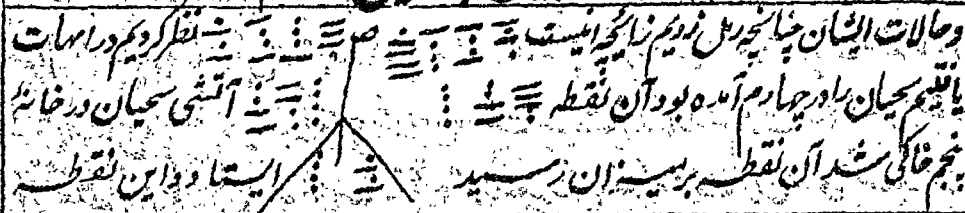 وحالات ایشان چنانچه رمل زدیم زائچه اینست ص نظر کردیم در امهات
یافتیم لحیان را در چهارم آمده بود آن نقطه آتشی لحیان در خانهٔ
پنجم خاکی شد آن نقطه بر میزان رسید ایستاد و این نقطه